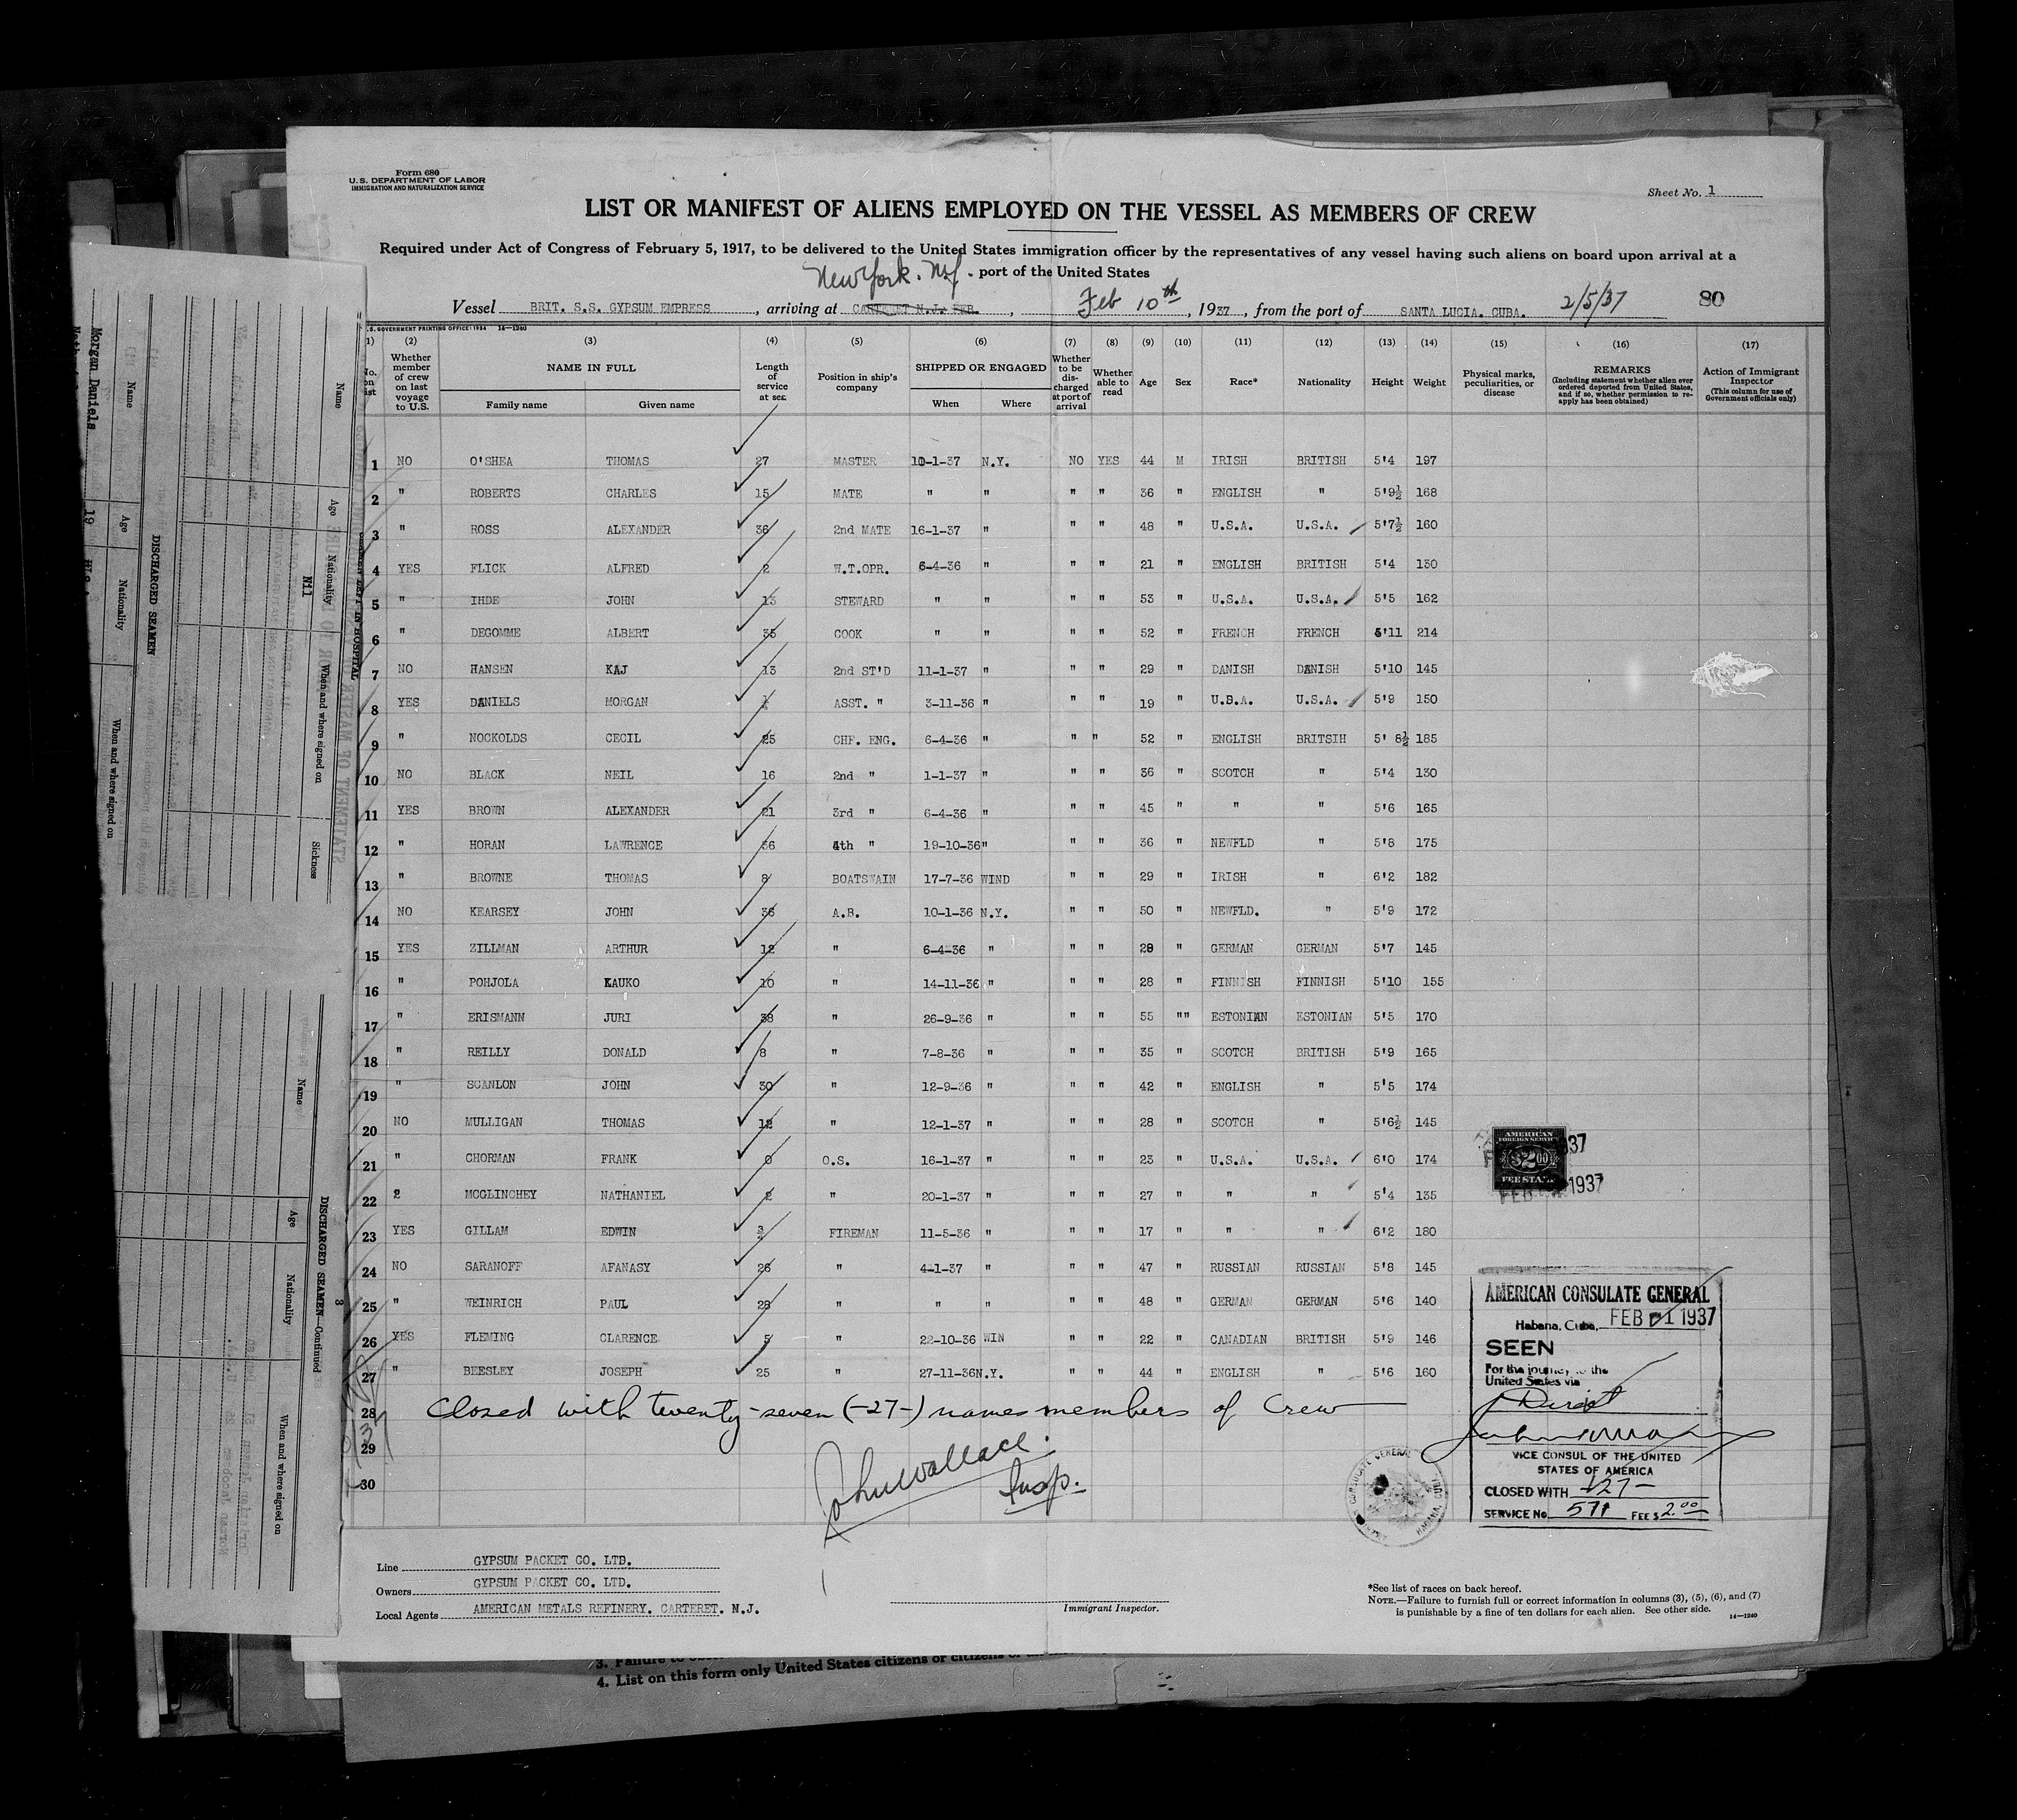 Form 680
U.S. DEPARTMENT OF LABOR
IMMIGRATION AND NATURALIZATION SERVICE
Sheet No. 1
LIST OR MANIFEST OF ALIENS EMPLOYED ON THE VESSEL AS MEMBERS OF CREW
Required under Act of Congress of February 5, 1917, to be delivered to the United States immigration officer by the representatives of any vessel having such aliens on board upon arrival at a
port of the United States
New York. N.Y.
Vessel BRIT. S.S. GYPSUM EMPRESS, arriving at CARTERET N.J. FEB., Feb 10th, 1937, from the port of SANTA LUCIA. CUBA. 2/5/37 80
U.S. GOVERNMENT PRINTING OFFICE: 1934 14—1240
(1) (2) (3) (4) (5) (6) (7) (8) (9) (10) (11) (12) (13) (14) (15) (16) (17)
No. on list
Whether member of crew on last voyage to U.S.
NAME IN FULL
Family name Given name
Length of service at sea
Position in ship's company
SHIPPED OR ENGAGED
When Where
Whether to be discharged at port of arrival
Whether able to read
Age Sex Race* Nationality Height Weight
Physical marks, peculiarities, or disease
REMARKS
(Including statement whether alien ever ordered deported from United States, and if so, whether permission to reapply has been obtained)
Action of Immigrant Inspector
(This column for use of Government officials only)
1 NO O'SHEA THOMAS 27 MASTER 10-1-37 N.Y. NO YES 44 M IRISH BRITISH 5'4 197
2 " ROBERTS CHARLES 15 MATE " " " " 36 " ENGLISH " 5'9½ 168
3 " ROSS ALEXANDER 36 2nd MATE 16-1-37 " " " 48 " U.S.A. U.S.A. 5'7½ 160
4 YES FLICK ALFRED 2 W.T.OPR. 6-4-36 " " " 21 " ENGLISH BRITISH 5'4 130
5 " IHDE JOHN 13 STEWARD " " " " 53 " U.S.A. U.S.A. 5'5 162
6 " DEGOMME ALBERT 35 COOK " " " " 52 " FRENCH FRENCH 5'11 214
7 NO HANSEN KAJ 13 2nd ST'D 11-1-37 " " " 29 " DANISH DANISH 5'10 145
8 YES DANIELS MORGAN ASST. " 3-11-36 " " " 19 " U.B.A. U.S.A. 5'9 150
9 " NOCKOLDS CECIL 25 CHF. ENG. 6-4-36 " " " 52 " ENGLISH BRITSIH 5' 8½ 185
10 NO BLACK NEIL 16 2nd " 1-1-37 " " " 36 " SCOTCH " 5'4 130
11 YES BROWN ALEXANDER 21 3rd " 6-4-36 " " " 45 " " " 5'6 165
12 " HORAN LAWRENCE 36 4th " 19-10-36 " " " 36 " NEWFLD " 5'8 175
13 " BROWNE THOMAS 8 BOATSWAIN 17-7-36 WIND " " 29 " IRISH " 6'2 182
14 NO KEARSEY JOHN 36 A.B. 10-1-36 N.Y. " " 50 " NEWFLD. " 5'9 172
15 YES ZILLMAN ARTHUR 12 " 6-4-36 " " " 29 " GERMAN GERMAN 5'7 145
16 " POHJOLA KAUKO 10 " 14-11-36 " " " 28 " FINNISH FINNISH 5'10 155
17 " ERISMANN JURI 38 " 26-9-36 " " " 55 "" ESTONIAN ESTONIAN 5'5 170
18 " REILLY DONALD 8 " 7-8-36 " " " 35 " SCOTCH BRITISH 5'9 165
19 " SCANLON JOHN 30 " 12-9-36 " " " 42 " ENGLISH " 5'5 174
20 NO MULLIGAN THOMAS 12 " 12-1-37 " " " 28 " SCOTCH " 5'6½ 145
21 " CHORMAN FRANK 0 O.S. 16-1-37 " " " 23 " U.S.A. U.S.A. 6'0 174
22 2 MCGLINCHEY NATHANIEL 2 " 20-1-37 " " " 27 " " " 5'4 135
23 YES GILLAM EDWIN FIREMAN 11-5-36 " " " 17 " " " 6'2 180
24 NO SARANOFF AFANASY 26 " 4-1-37 " " " 47 " RUSSIAN RUSSIAN 5'8 145
25 " WEINRICH PAUL 28 " " " " " 48 " GERMAN GERMAN 5'6 140
26 YES FLEMING CLARENCE 5 " 22-10-36 WIN " " 22 " CANADIAN BRITISH 5'9 146
27 " BEESLEY JOSEPH 25 " 27-11-36 N.Y. " " 44 " ENGLISH " 5'6 160
28 Closed with twenty-seven (-27-) names members of Crew
29
30
John Wallace.
Insp.
AMERICAN FOREIGN SERVICE
$2.00
FEE STAMP
FEB 1937
AMERICAN CONSULATE GENERAL
Habana, Cuba, FEB 1 1937
SEEN
For the journey to the
United States via
Direct
VICE CONSUL OF THE UNITED
STATES OF AMERICA
CLOSED WITH -27-
SERVICE No. 571 FEE $ 2.00
Line GYPSUM PACKET CO. LTD.
Owners GYPSUM PACKET CO. LTD.
Local Agents AMERICAN METALS REFINERY. CARTERET. N.J.
Immigrant Inspector.
*See list of races on back hereof.
NOTE.—Failure to furnish full or correct information in columns (3), (5), (6), and (7)
is punishable by a fine of ten dollars for each alien. See other side.
14—1240
4. List on this form only United States citizens or
Name Age Nationality When and where signed on Sickness
Nil
DISCHARGED SEAMEN
Name Age Nationality When and where signed on
Morgan Daniels 19
DISCHARGED SEAMEN—Continued
Name Age Nationality When and where signed on